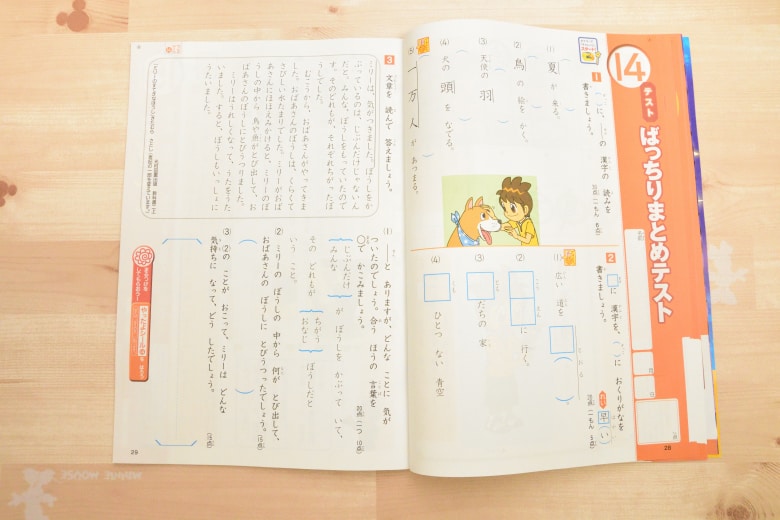 14
テスト
ばっちりまとめテスト
1
（ ）に、――の 漢字の 読みを
書きましょう。
(1) 夏が 来る。
(2) 鳥の 絵を かく。
(3) 天使の 羽
(4) 犬の 頭を なでる。
(5) 十万人が あつまる。
2
□に 漢字を、（ ）に おくりがなを
書きましょう。
早（い）
(1) 広い 道を
(2) に 行く。
(3) たちの 家
(4) ひとつ ない 青空
28
3 文章を 読んで 答えましょう。
ミリーは、気がつきました。ぼうしをか
ぶっているのは、じぶんだけじゃないん
だと。みんな、ぼうしをもっていたので
す。そのどれもが、それぞれちがったぼ
うしでした。
むこうから、おばあさんがやってきま
した。おばあさんのぼうしは、くらくて
さびしい水たまりでした。ミリーがおば
あさんにほほえみかけると、ミリーのぼ
うしの中から、鳥や魚がとび出して、お
ばあさんのぼうしにとびうつりました。
ミリーはうれしくなって、うたをうた
いました。すると、ぼうしもいっしょに
うたいました。
(1) ――と ありますが、どんな ことに 気が
ついたのでしょう。合う ほうの 言葉を
○で かこみましょう。
じぶんだけ
みんな
が ぼうしを かぶって いて、
その どれもが
ちがう
おなじ
ぼうしだと
いう こと。
(2) ミリーの ぼうしの 中から 何が とび出して、
おばあさんの ぼうしに とびうつったでしょう。
(3) ②の ことが おこって、ミリーは どんな
気持ちに なって、どう したでしょう。
29
MINNIE MOUSE